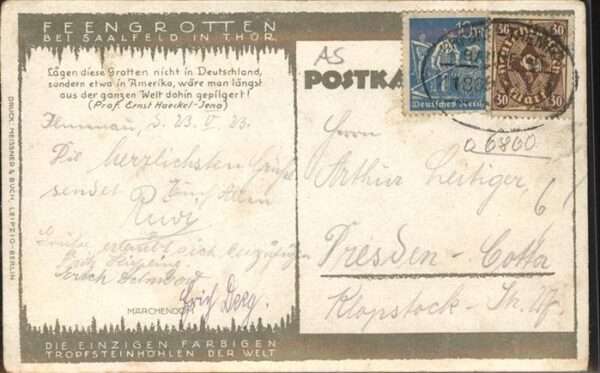 FEENGROTTEN
BEI SAALFELD IN THÜR.
Lägen diese Grotten nicht in Deutschland,
sondern etwa in Amerika, wäre man längst
aus der ganzen Welt dahin gepilgert!
(Prof. Ernst Haeckel-Jena)
Ilmenau, 23. V 23.
Die herzlichsten Grüße
sendet
Grüße erlaubt sich
Erich
Erich Berg.
MÄRCHENDOM
DIE EINZIGEN FARBIGEN
TROPFSTEINHÖHLEN DER WELT
DRUCK: MEISSNER & BUCH, LEIPZIG-BERLIN
AS
POSTKA
10
Deutsches Reich
30
30
30
30
06800
Herrn
Arthur Leitiger,
Dresden-Cotta
Klopstock-